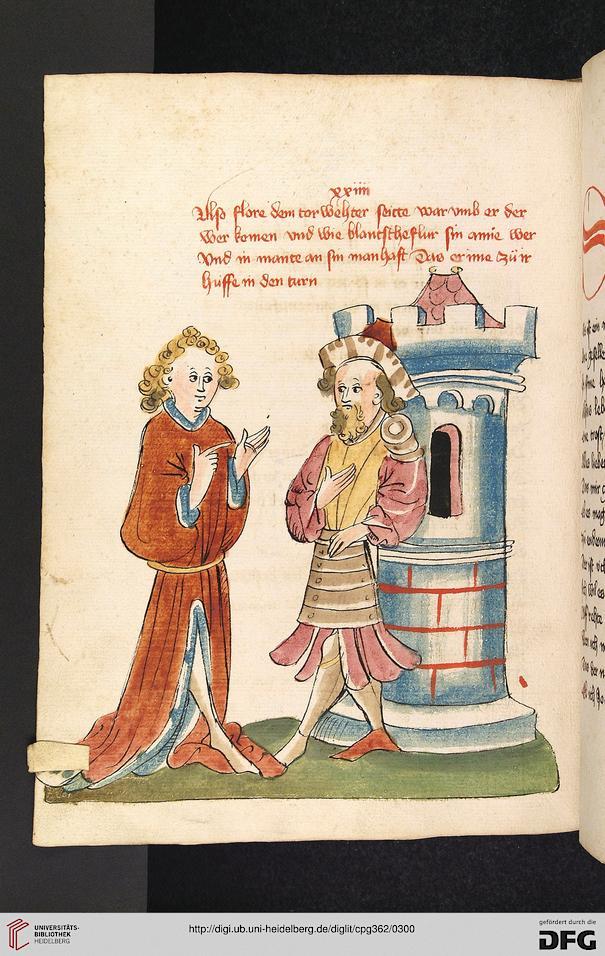 xxiiii
Also flore dem torwehter seitte war vmb er der
wer komen vnd wie blantscheflur sin amie wer
vnd in mante an sin manhaft Das er ime zü ir
hüffe in den turn
UNIVERSITÄTS-
BIBLIOTHEK
HEIDELBERG
http://digi.ub.uni-heidelberg.de/diglit/cpg362/0300
gefördert durch die
DFG